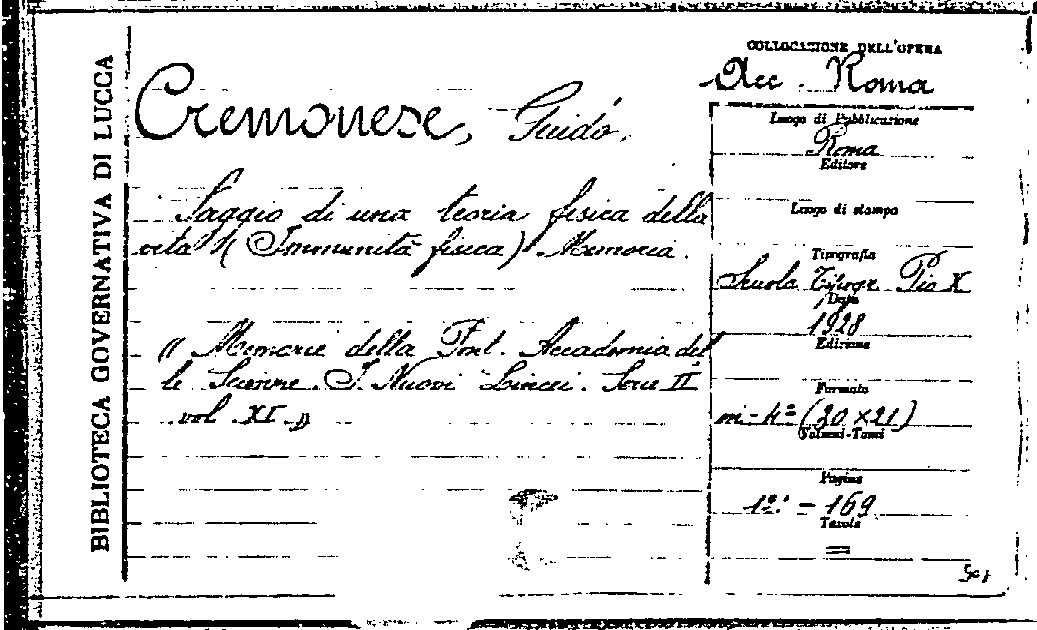 BIBLIOTECA GOVERNATIVA DI LUCCA
Cremonese, Guido.
Saggio di una teoria fisica della
vita (Immunità fisica) Memoria.
(( Memorie della Pont. Accademia del
le Scienze. I Nuovi Lincei. Serie II
vol. XI. ))
COLLOCAZIONE DELL'OPERA
Acc. Roma
Luogo di Pubblicazione
Roma
Editore
Luogo di stampa
Tipografia
Scuola Tipogr Pio X
Data
1928
Edizione
Formato
in-4º (30 x 21)
Volumi-Tomi
Pagine
- 169
Tavole
=